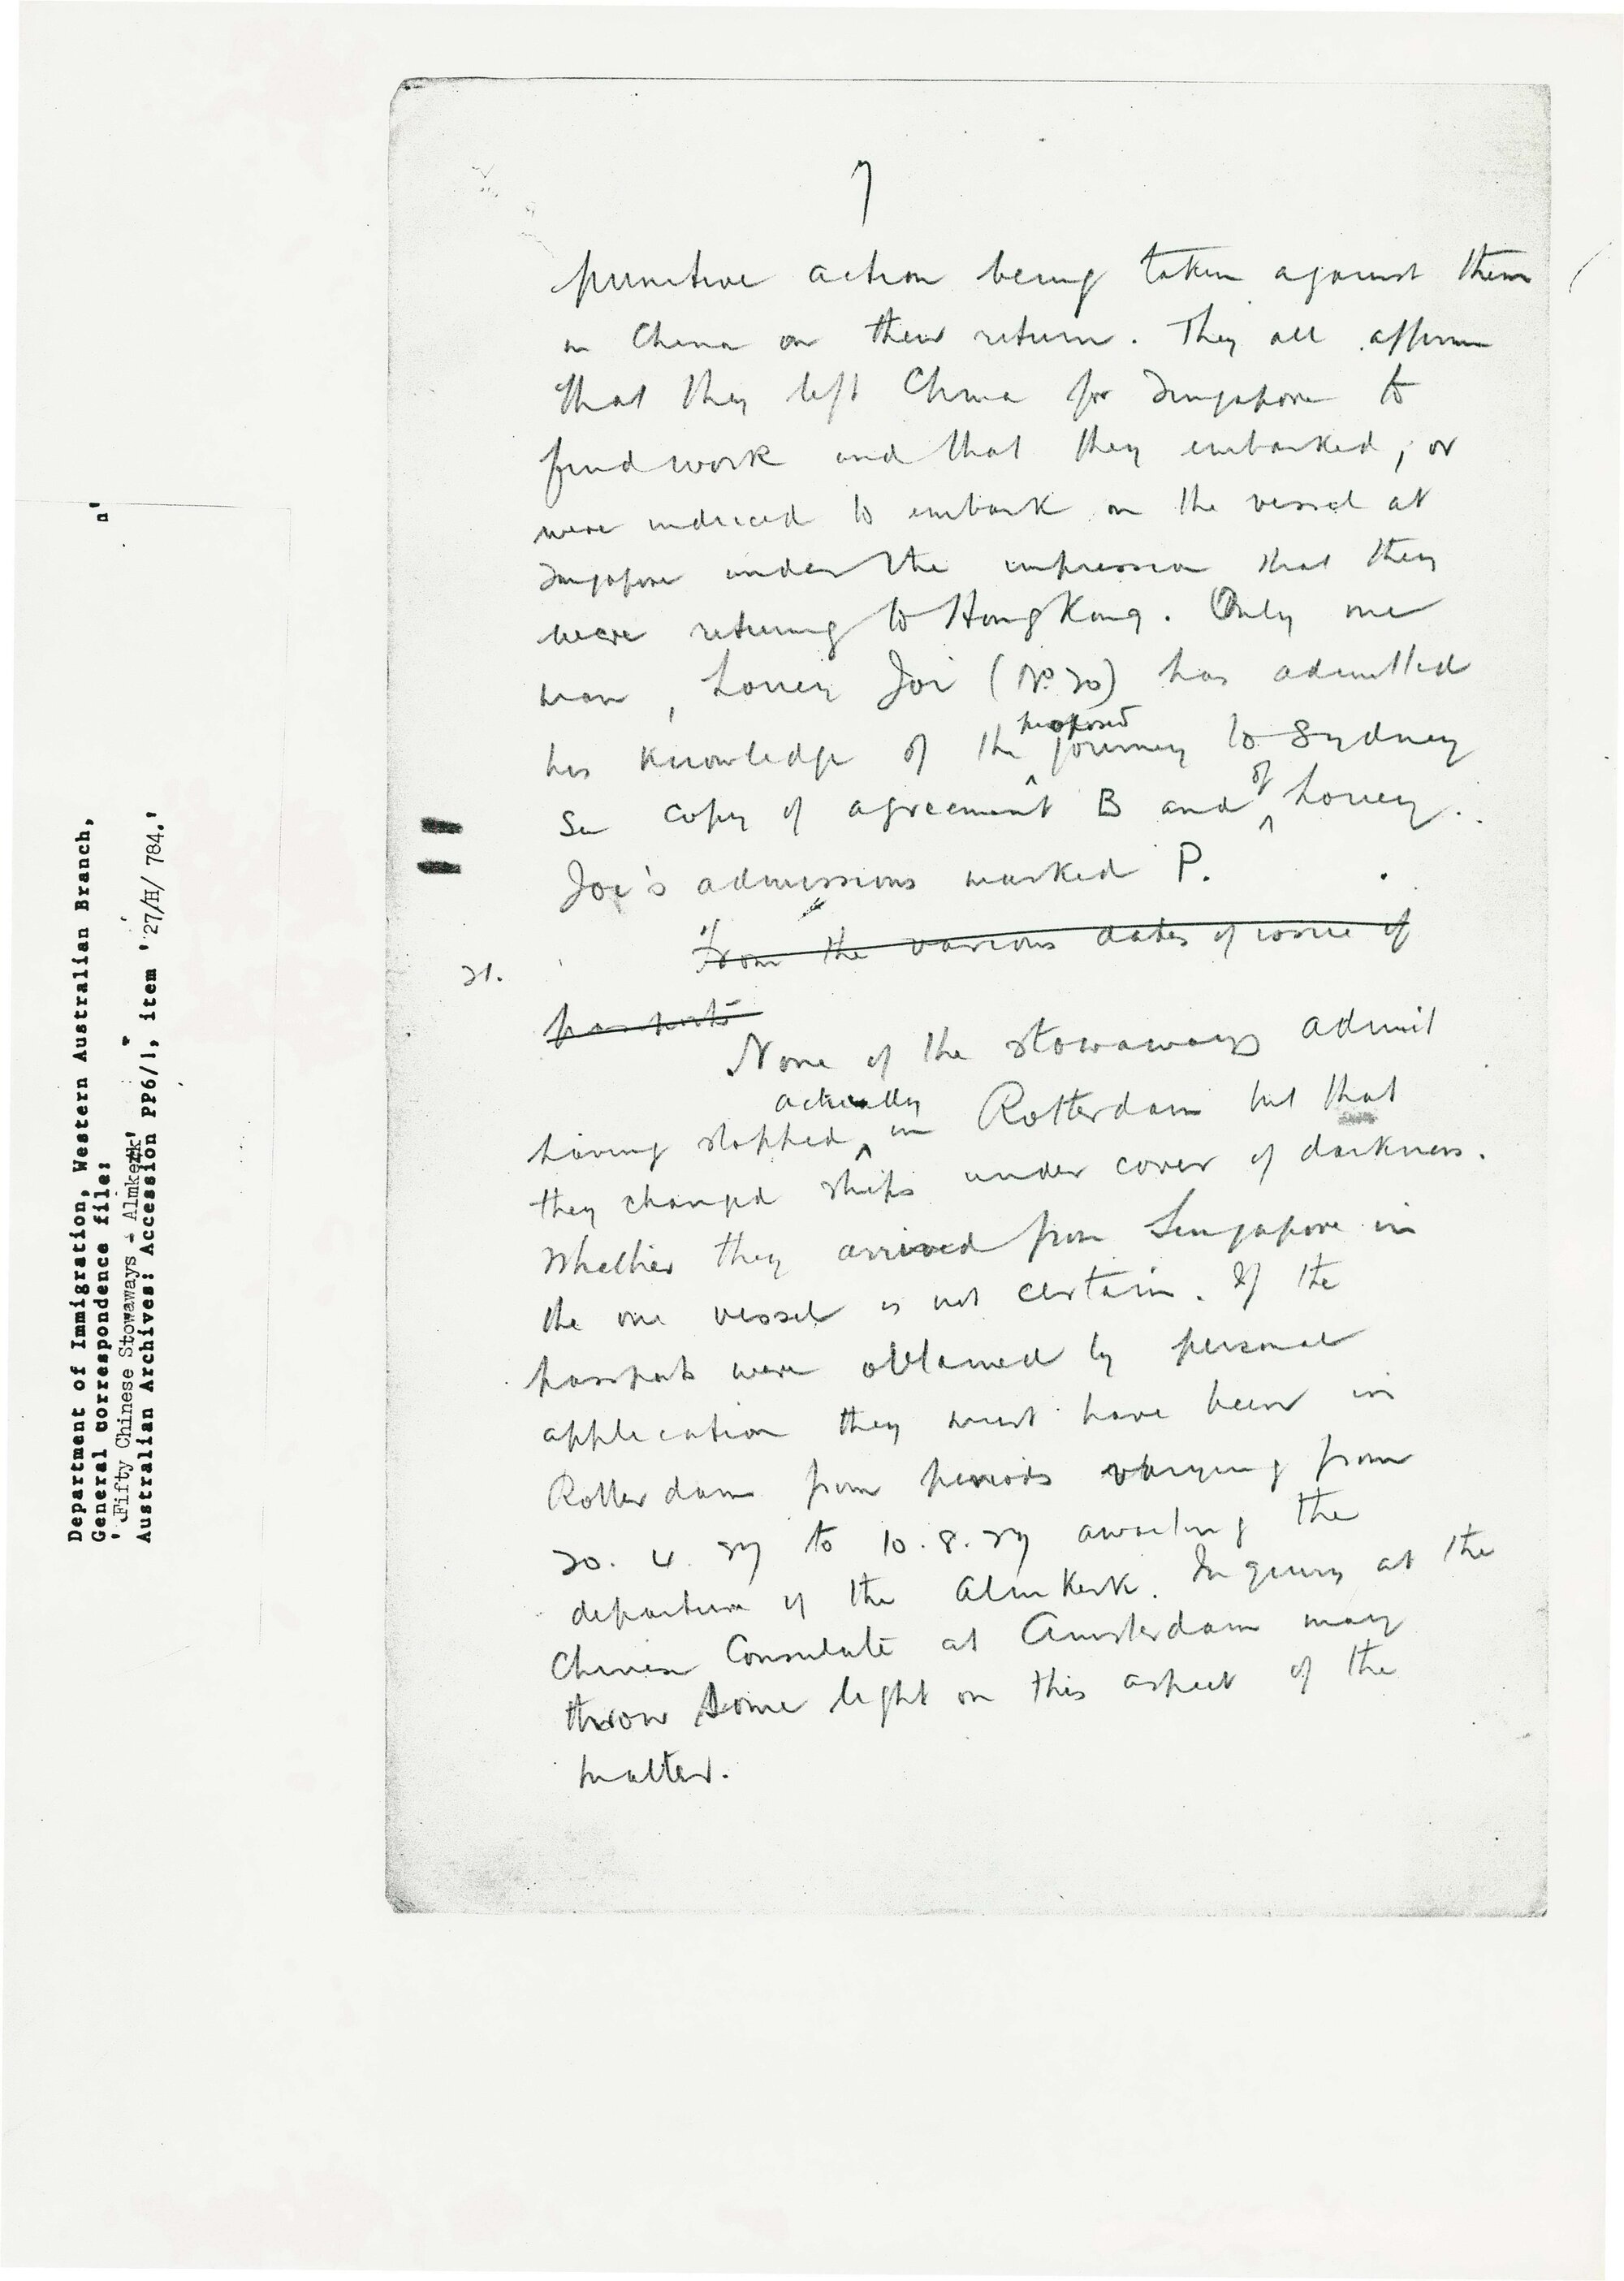 7
punitive action being taken against them
in China on their return. They all affirm
that they left China for Singapore to
find work and that they embarked, or
were induced to embark on the vessel at
Singapore under the impression that they
were returing to Hong Kong. Only one
man, Louey Joi (No 20) has admitted
his knowledge of the proposed journey to Sydney
See copy of agreement B and of Louey.
Joi's admissions marked P.
21. From the various dates of issue of
passports
None of the stowaways admit
having stopped actually in Rotterdam but that
they changed ships under cover of darkness.
Whether they arrived from Singapore in
the one vessel is not certain. If the
passports were obtained by personal
application they must have been in
Rotterdam from periods varying from
20. 4. 27 to 10. 8. 27 awaiting the
departure of the Almkerk. Inquiry at the
Chinese Consulate at Amsterdam may
throw some light on this aspect of the
matter.
Department of Immigration, Western Australian Branch,
General correspondence file:
' Fifty Chinese Stowaways - Almkerk'
Australian Archives: Accession PP6/1, item '27/H/ 784.'
n'